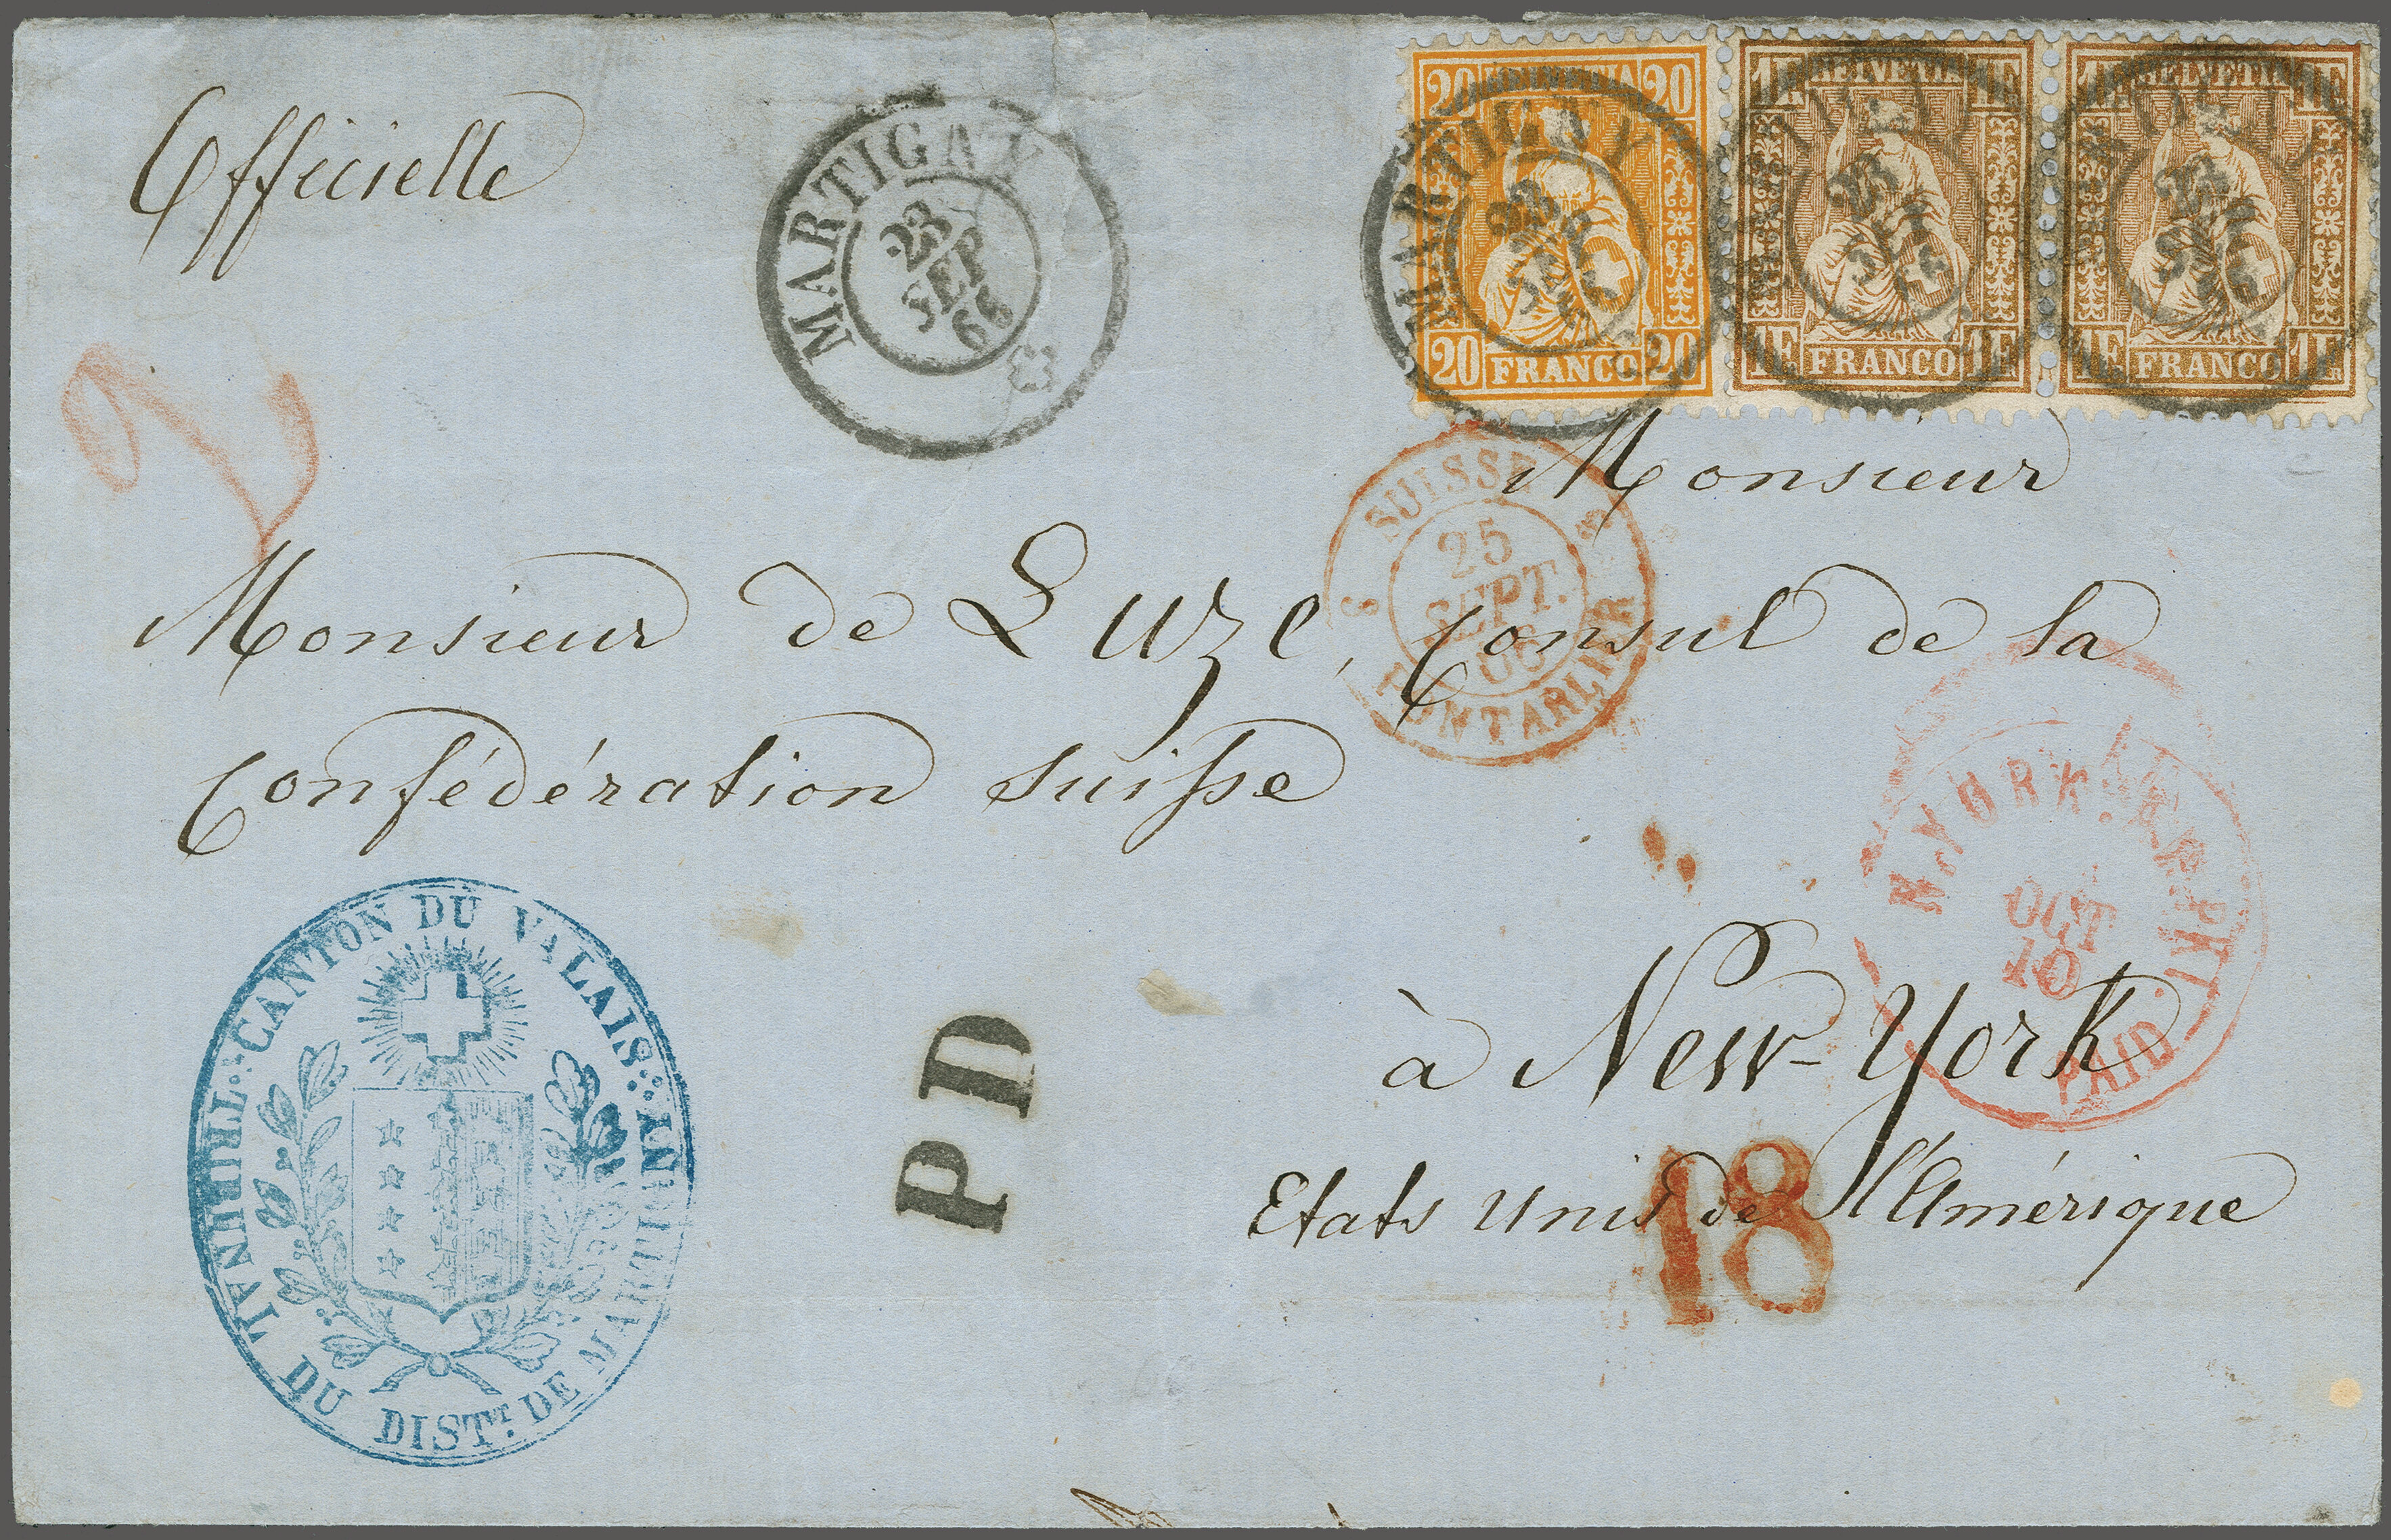 Officielle
MARTIGNY
23
SEP
66
20 HELVETIA 20
20 FRANCO 20
MARTIGNY
23
SEP
1F HELVETIA 1F
1F FRANCO 1F
23
SEP
1F HELVETIA 1F
1F FRANCO 1F
23
SEP
2
SUISSE
25
SEPT.
66
PONTARLIER
Monsieur
Monsieur de Luze, Consul de la
Confédération suisse
N. YORK. AM. PKT.
OCT
10
PAID
à New-York
Etats Unis de l'Amérique
18
PD
CANTON DU VALAIS
TRIBUNAL DU DISTCT. DE MARTIGNY